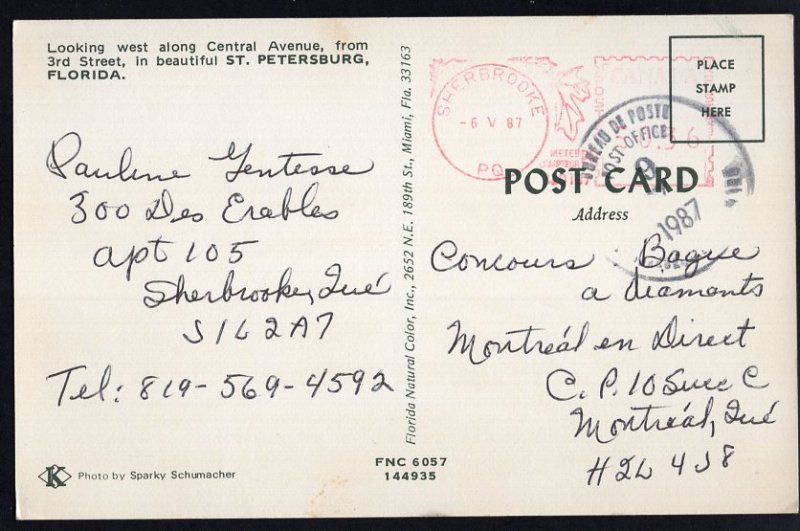 Looking west along Central Avenue, from
3rd Street, in beautiful ST. PETERSBURG,
FLORIDA.
Pauline Gentesse
300 Des Erables
apt 105
Sherbrooke, Qué
J1L2A7
Tel: 819-569-4592
Photo by Sparky Schumacher
Florida Natural Color, Inc., 2652 N.E. 189th St., Miami, Fla. 33163
FNC 6057
144935
SHERBROOKE
-6 V 87
PQ
CANADA
BUREAU DE POSTE
POST OFFICE
1987
PLACE
STAMP
HERE
POST CARD
Address
Concours Bague
a diamants
Montréal en Direct
C.P. 10 Succ C
Montréal, Qué
H2L 4J8